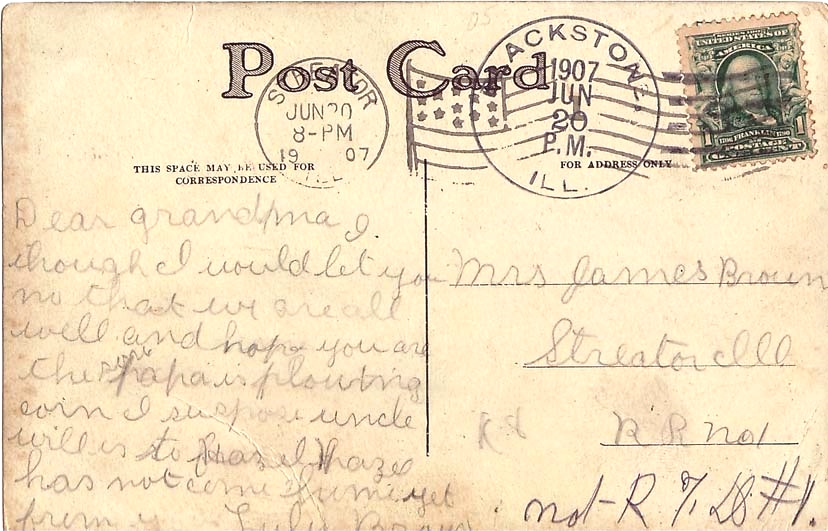 Post Card
STREATOR
JUN 20
8-PM
19 07
ILL.
BLACKSTONE,
1907
JUN
20
P.M.
ILL.
SERIES 1902
UNITED STATES OF
AMERICA
1 FRANKLIN 1
POSTAGE
THIS SPACE MAY BE USED FOR
CORRESPONDENCE
FOR ADDRESS ONLY
Dear grandma I
though I would let you
no that we are all
well and hope you are
the same papa is plowing
corn I suspose uncle
will is to Hazel
has not come home yet
from Lulu Brown
Mrs James Brown
Streator Ill
R R No 1
not - R F D #1.